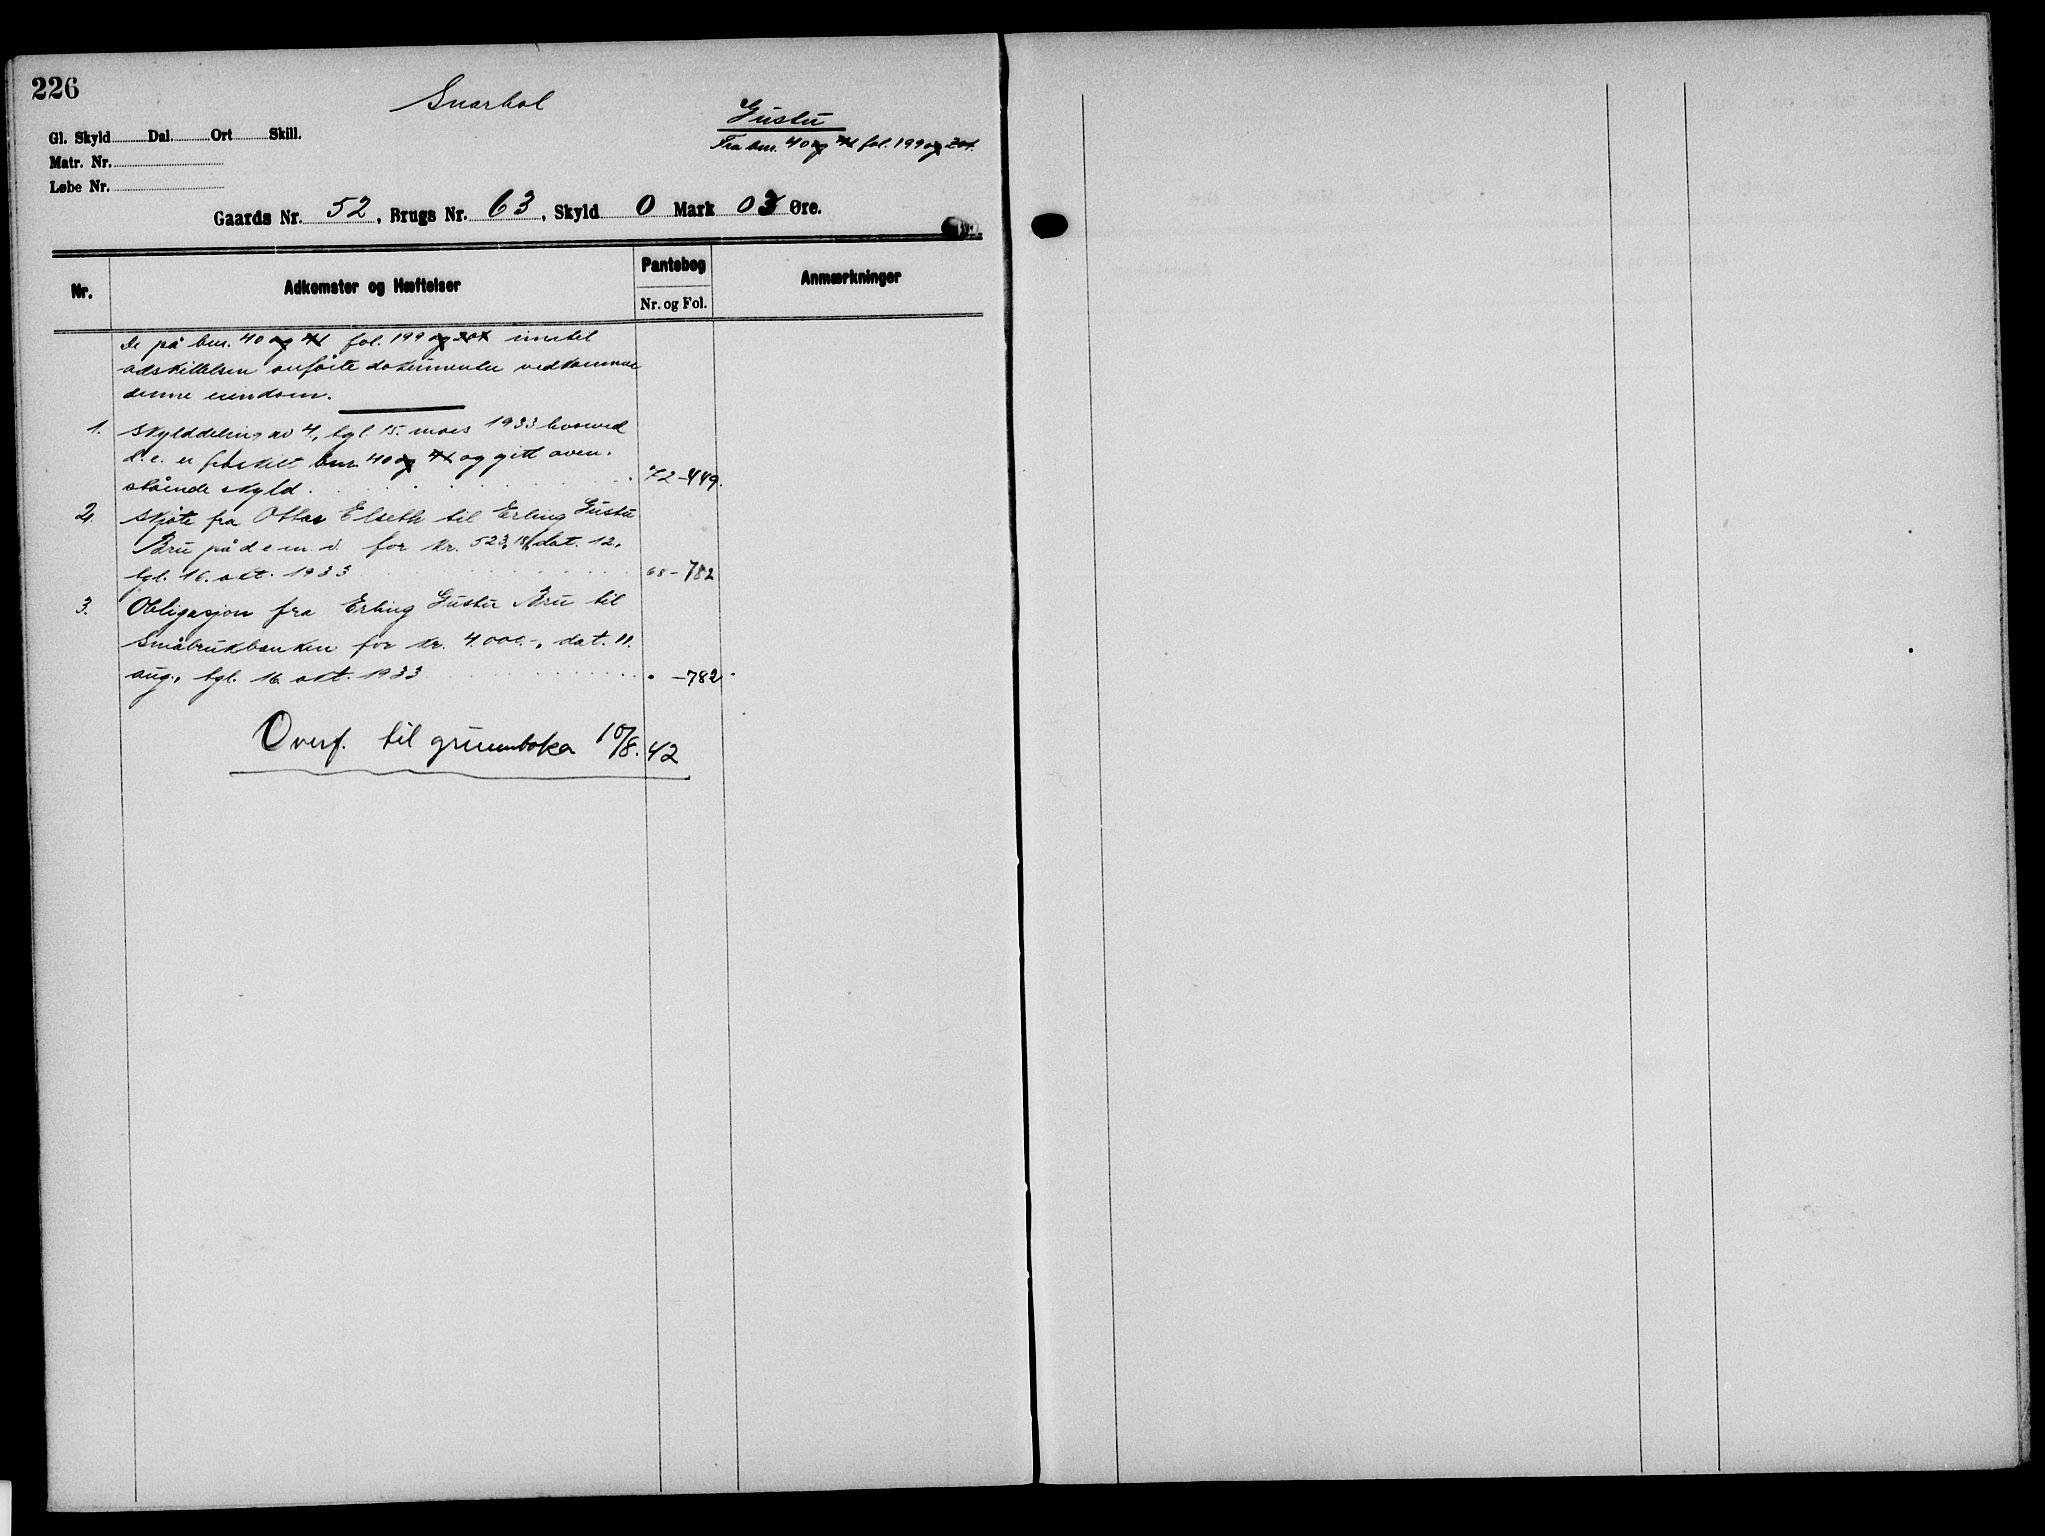 226
Snarhol
Gustu
Fra bnr. 40 og 41 fol. 199 og 201.
Gl. Skyld Dal. Ort Skill.
Matr. Nr.
Løbe Nr.
Gaards Nr. 52, Brugs Nr. 63, Skyld 0 Mark 03 Øre.
Nr. Adkomster og Hæftelser Pantebog Anmærkninger
Nr. og Fol.
De på bnr. 40 og 41 fol. 199 og 201 inntil
adskillelsen anførte dokumenter vedkommer
denne eiendom.
1. Skylddeling av 4., tgl. 15. mars 1933 hvorved
d.e. er fraskilt bnr. 40 og 41 og gitt oven-
stående skyld. 72-449.
2. Skjøte fra Ottar Elseth til Erling Gustu
Bru på d e m. v. for kr. 523,18, dat. 12.
tgl. 16. okt. 1933 68-782
3. Obligasjon fra Erling Gustu Bru til
Småbrukbanken for kr. 4.000.-, dat. 11.
aug., tgl. 16. okt. 1933 " -782
Overf. til grunnboka 10/8.42